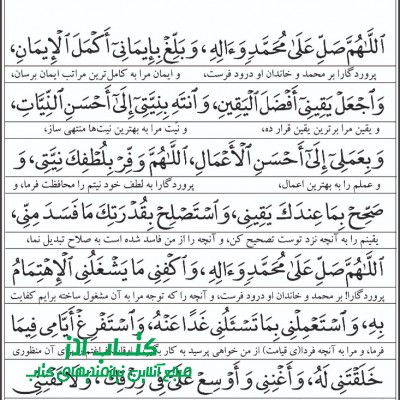 اَللّٰهُمَّ صَلِّ عَلٰى مُحَمَّدٍ وَ اٰلِهِ، وَ بَلِّغْ بِإِيمَانِىٓ أَكْمَلَ الْإِيمَانِ،
پروردگارا بر محمد و خاندان او درود فرست، و ایمان مرا به کامل‌ترین مراتب ایمان برسان،
وَ اجْعَلْ يَقِينِىٓ أَفْضَلَ الْيَقِينِ، وَ انْتَهِ بِنِيَّتِىٓ إِلٰىٓ أَحْسَنِ النِّيَّاتِ،
و یقین مرا برترین یقین قرار ده، و نیت مرا به بهترین نیت‌ها منتهی ساز،
وَ بِعَمَلِىٓ إِلٰىٓ أَحْسَنِ الْأَعْمَالِ، اَللّٰهُمَّ وَفِّرْ بِلُطْفِكَ نِيَّتِى، وَ
و عملم را به بهترین اعمال، پروردگارا به لطف خود نیتم را محافظت فرما، و
صَحِّحْ بِمَا عِنْدَكَ يَقِينِى، وَ اسْتَصْلِحْ بِقُدْرَتِكَ مَا فَسَدَ مِنِّى،
یقینم را به آنچه نزد توست تصحیح کن، و آنچه را از من فاسد شده است به صلاح تبدیل نما،
اَللّٰهُمَّ صَلِّ عَلٰى مُحَمَّدٍ وَ اٰلِهِ، وَ اكْفِنِى مَا يَشْغَلُنِى الْاِهْتِمَامُ
پروردگارا! بر محمد و خاندان او درود فرست، و آنچه را که توجه مرا به آن مشغول ساخته برایم کفایت
بِهِ، وَ اسْتَعْمِلْنِى بِمَا تَسْئَلُنِى غَدًا عَنْهُ، وَ اسْتَفْرِغْ أَيَّامِى فِيمَا
فرما، و مرا به آنچه فردا(ی قیامت) از من خواهی پرسید به کار آن منظوری
خَلَقْتَنِى لَهُ، وَ أَغْنِنِى وَ أَوْسِعْ عَلَىَّ فِى رِزْقِكَ، وَ لَا تَفْتِنِّى
کتاب لاز
مرجع آنلاین نیازمندی‌های کتاب